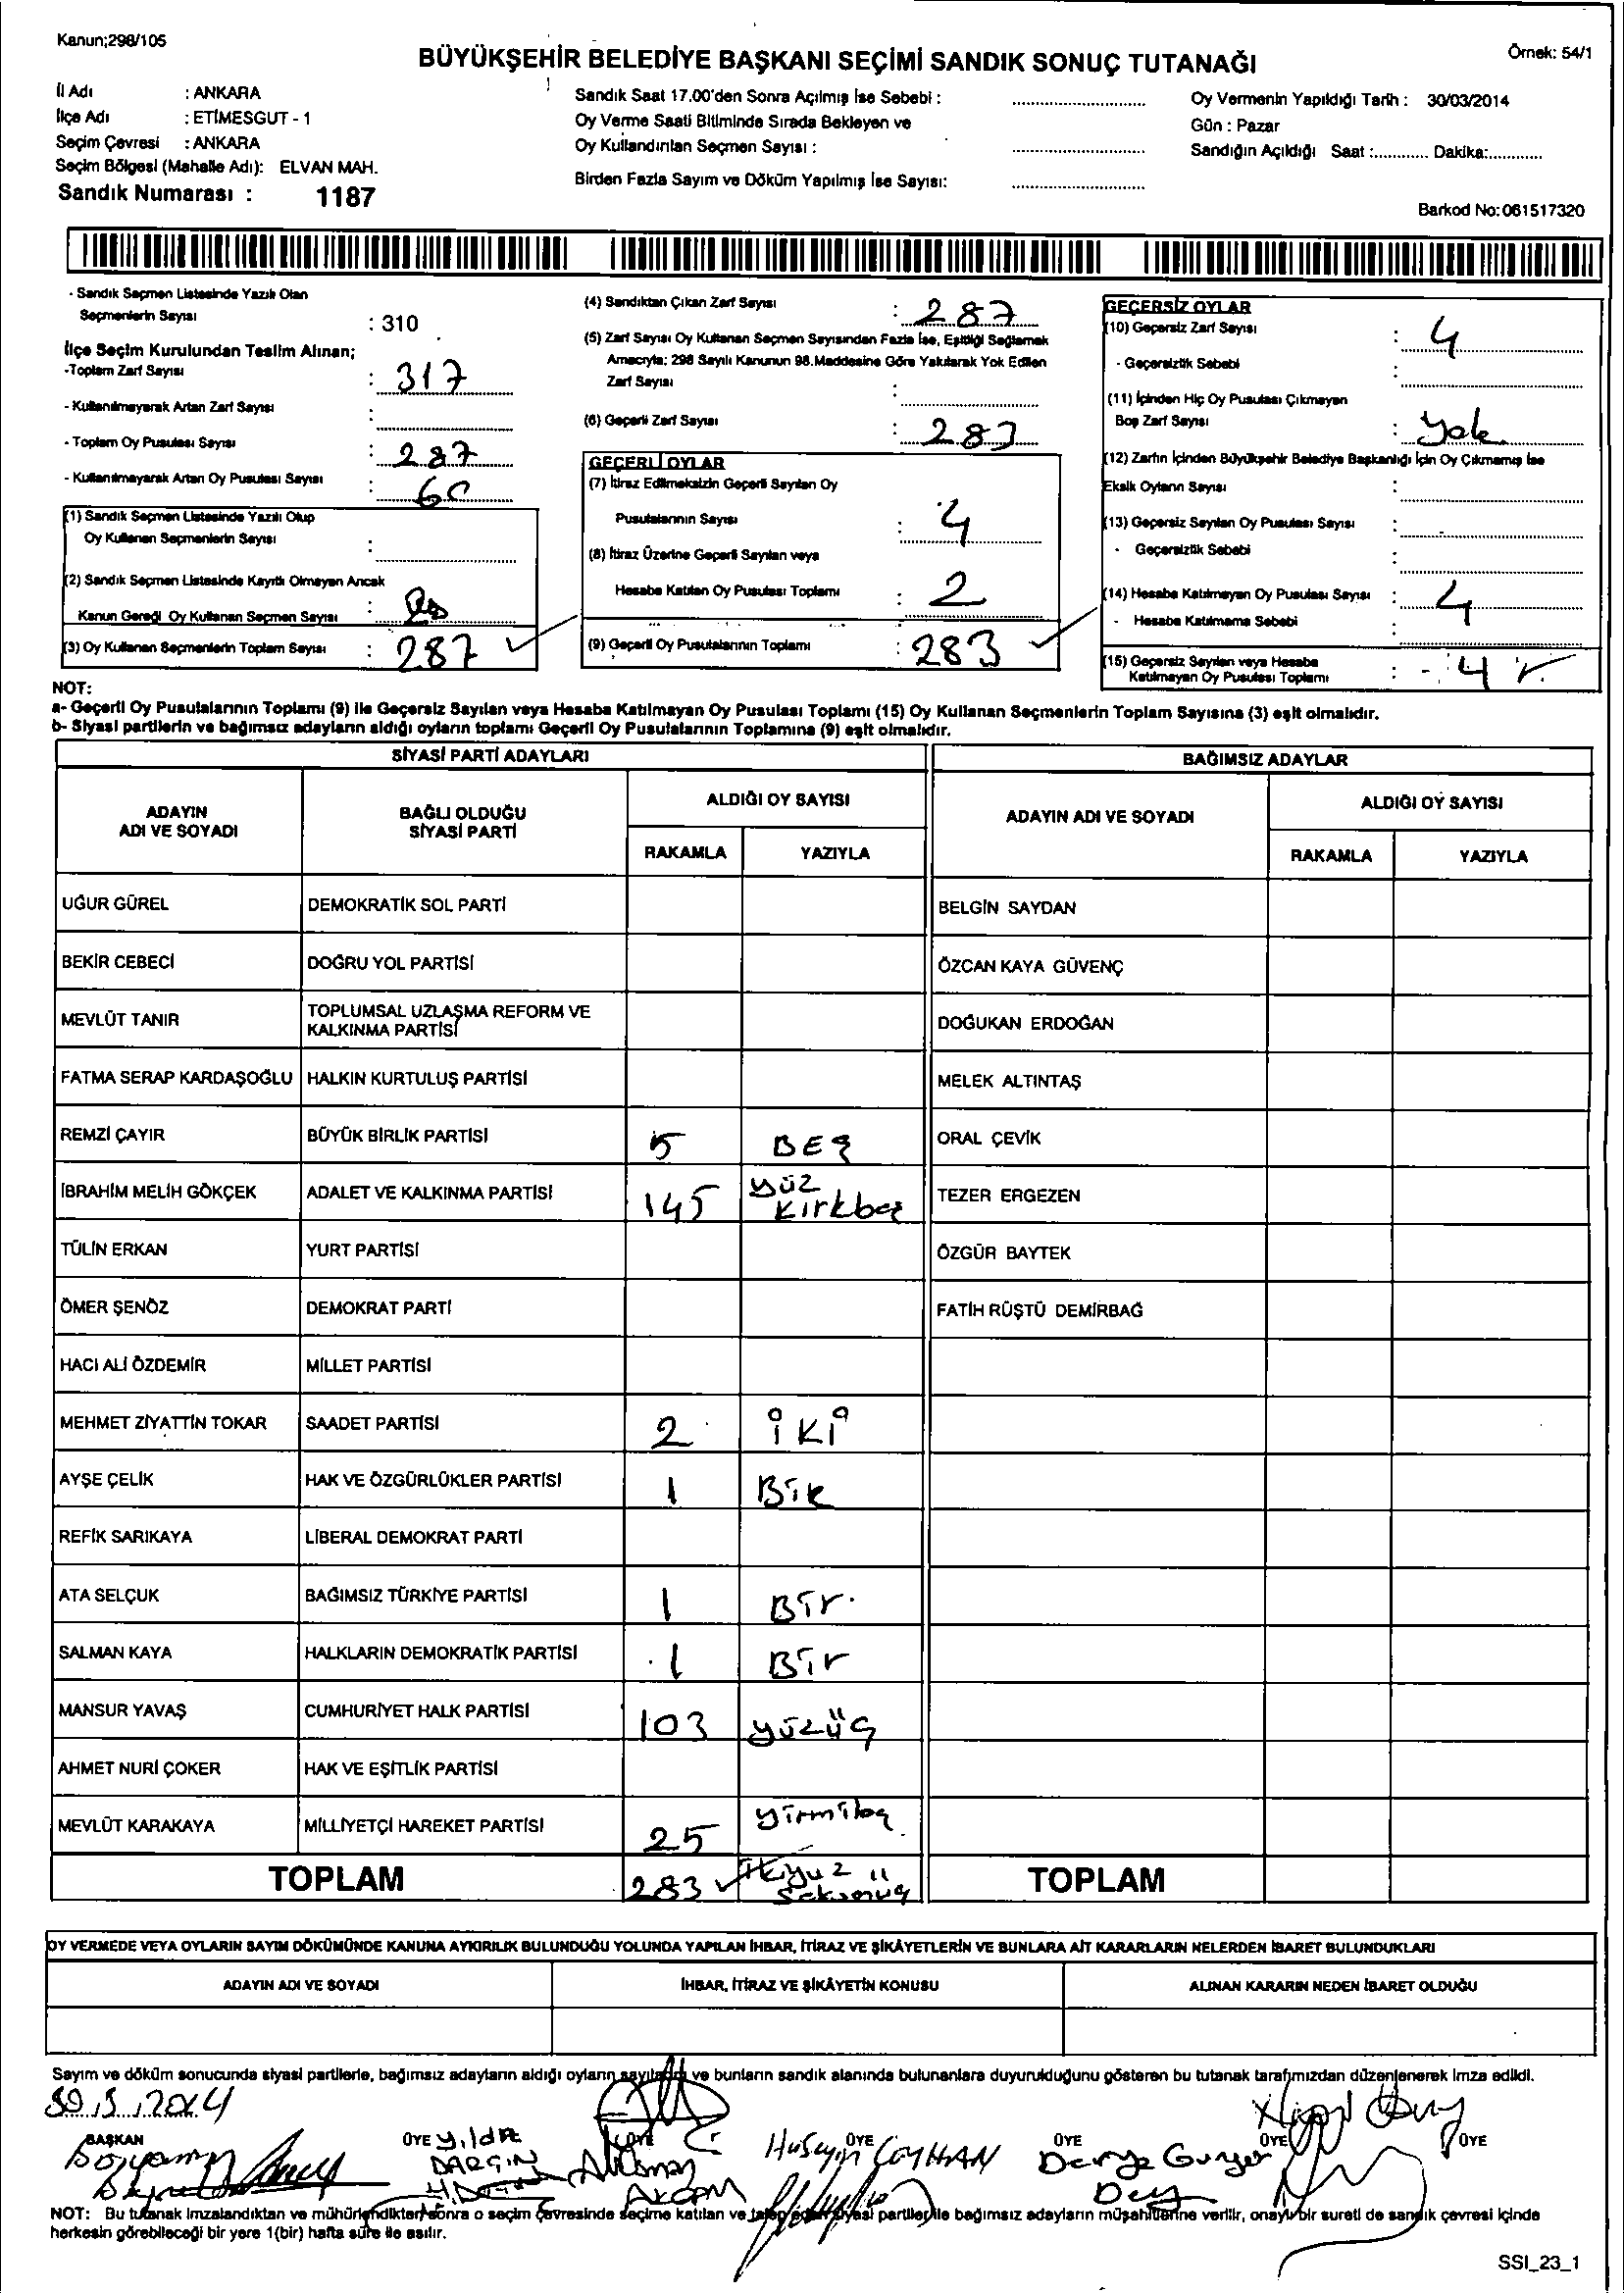 Kanun;298/105
Örnek: 54/1
BÜYÜKŞEHİR BELEDİYE BAŞKANI SEÇİMİ SANDIK SONUÇ TUTANAĞI
İl Adı : ANKARA
İlçe Adı : ETİMESGUT - 1
Seçim Çevresi : ANKARA
Seçim Bölgesi (Mahalle Adı): ELVAN MAH.
Sandık Numarası : 1187
Sandık Saat 17.00'den Sonra Açılmış İse Sebebi :
Oy Verme Saati Bitiminde Sırada Bekleyen ve
Oy Kullandırılan Seçmen Sayısı :
Birden Fazla Sayım ve Döküm Yapılmış İse Sayısı:
Oy Vermenin Yapıldığı Tarih : 30/03/2014
Gün : Pazar
Sandığın Açıldığı Saat :............ Dakika:............
Barkod No:061517320
- Sandık Seçmen Listesinde Yazılı Olan
Seçmenlerin Sayısı : 310
İlçe Seçim Kurulundan Teslim Alınan;
-Toplam Zarf Sayısı : 317
- Kullanılmayarak Artan Zarf Sayısı :
- Toplam Oy Pusulası Sayısı : 287
- Kullanılmayarak Artan Oy Pusulası Sayısı : 60
(1) Sandık Seçmen Listesinde Yazılı Olup
Oy Kullanan Seçmenlerin Sayısı :
(2) Sandık Seçmen Listesinde Kayıtlı Olmayan Ancak
Kanun Gereği Oy Kullanan Seçmen Sayısı :
(3) Oy Kullanan Seçmenlerin Toplam Sayısı : 287
(4) Sandıktan Çıkan Zarf Sayısı : 287
(5) Zarf Sayısı Oy Kullanan Seçmen Sayısından Fazla İse, Eşitliği Sağlamak
Amacıyla; 298 Sayılı Kanunun 98.Maddesine Göre Yakılarak Yok Edilen
Zarf Sayısı :
(6) Geçerli Zarf Sayısı : 283
GEÇERLİ OYLAR
(7) İtiraz Edilmeksizin Geçerli Sayılan Oy
Pusulalarının Sayısı : 4
(8) İtiraz Üzerine Geçerli Sayılan veya
Hesaba Katılan Oy Pusulası Toplamı : 2
(9) Geçerli Oy Pusulalarının Toplamı : 283
GEÇERSİZ OYLAR
(10) Geçersiz Zarf Sayısı : 4
- Geçersizlik Sebebi :
(11) İçinden Hiç Oy Pusulası Çıkmayan
Boş Zarf Sayısı : Yok
(12) Zarfın İçinden Büyükşehir Belediye Başkanlığı İçin Oy Çıkmamış İse
Eksik Oyların Sayısı :
(13) Geçersiz Sayılan Oy Pusulası Sayısı :
- Geçersizlik Sebebi :
(14) Hesaba Katılmayan Oy Pusulası Sayısı : 4
- Hesaba Katılmama Sebebi :
(15) Geçersiz Sayılan veya Hesaba
Katılmayan Oy Pusulası Toplamı : 4
NOT:
a- Geçerli Oy Pusulalarının Toplamı (9) ile Geçersiz Sayılan veya Hesaba Katılmayan Oy Pusulası Toplamı (15) Oy Kullanan Seçmenlerin Toplam Sayısına (3) eşit olmalıdır.
b- Siyasi partilerin ve bağımsız adayların aldığı oyların toplamı Geçerli Oy Pusulalarının Toplamına (9) eşit olmalıdır.
SİYASİ PARTİ ADAYLARI
ADAYIN ADI VE SOYADI BAĞLI OLDUĞU SİYASİ PARTİ ALDIĞI OY SAYISI
RAKAMLA YAZIYLA
UĞUR GÜREL DEMOKRATİK SOL PARTİ
BEKİR CEBECİ DOĞRU YOL PARTİSİ
MEVLÜT TANIR TOPLUMSAL UZLAŞMA REFORM VE KALKINMA PARTİSİ
FATMA SERAP KARDAŞOĞLU HALKIN KURTULUŞ PARTİSİ
REMZİ ÇAYIR BÜYÜK BİRLİK PARTİSİ 5 BEŞ
İBRAHİM MELİH GÖKÇEK ADALET VE KALKINMA PARTİSİ 145 yüz kırkbeş
TÜLİN ERKAN YURT PARTİSİ
ÖMER ŞENÖZ DEMOKRAT PARTİ
HACI ALİ ÖZDEMİR MİLLET PARTİSİ
MEHMET ZİYATTİN TOKAR SAADET PARTİSİ 2 İKİ
AYŞE ÇELİK HAK VE ÖZGÜRLÜKLER PARTİSİ 1 BİR
REFİK SARIKAYA LİBERAL DEMOKRAT PARTİ
ATA SELÇUK BAĞIMSIZ TÜRKİYE PARTİSİ 1 Bir.
SALMAN KAYA HALKLARIN DEMOKRATİK PARTİSİ 1 Bir
MANSUR YAVAŞ CUMHURİYET HALK PARTİSİ 103 yüzüç
AHMET NURİ ÇOKER HAK VE EŞİTLİK PARTİSİ
MEVLÜT KARAKAYA MİLLİYETÇİ HAREKET PARTİSİ 25 yirmibeş
TOPLAM 283 ikiyüz seksenüç
BAĞIMSIZ ADAYLAR
ADAYIN ADI VE SOYADI ALDIĞI OY SAYISI
RAKAMLA YAZIYLA
BELGİN SAYDAN
ÖZCAN KAYA GÜVENÇ
DOĞUKAN ERDOĞAN
MELEK ALTINTAŞ
ORAL ÇEVİK
TEZER ERGEZEN
ÖZGÜR BAYTEK
FATİH RÜŞTÜ DEMİRBAĞ
TOPLAM
OY VERMEDE VEYA OYLARIN SAYIM DÖKÜMÜNDE KANUNA AYKIRILIK BULUNDUĞU YOLUNDA YAPILAN İHBAR, İTİRAZ VE ŞİKÂYETLERİN VE BUNLARA AİT KARARLARIN NELERDEN İBARET BULUNDUKLARI
ADAYIN ADI VE SOYADI İHBAR, İTİRAZ VE ŞİKÂYETİN KONUSU ALINAN KARARIN NEDEN İBARET OLDUĞU
Sayım ve döküm sonucunda siyasi partilerle, bağımsız adayların aldığı oyların sayıldığı ve bunların sandık alanında bulunanlara duyurulduğunu gösteren bu tutanak tarafımızdan düzenlenerek imza edildi.
30.3.2014
BAŞKAN ÜYE ÜYE ÜYE ÜYE ÜYE ÜYE
Yıldız DARGIN
AKÇAM
Hüseyin COYHAN
Derya Gunyer
NOT: Bu tutanak imzalandıktan ve mühürlendikten sonra o seçim çevresinde seçime katılan ve talep eden siyasi partiler ile bağımsız adayların müşahitlerine verilir, onaylı bir sureti de sandık çevresi içinde
herkesin görebileceği bir yere 1(bir) hafta süre ile asılır.
SSI_23_1